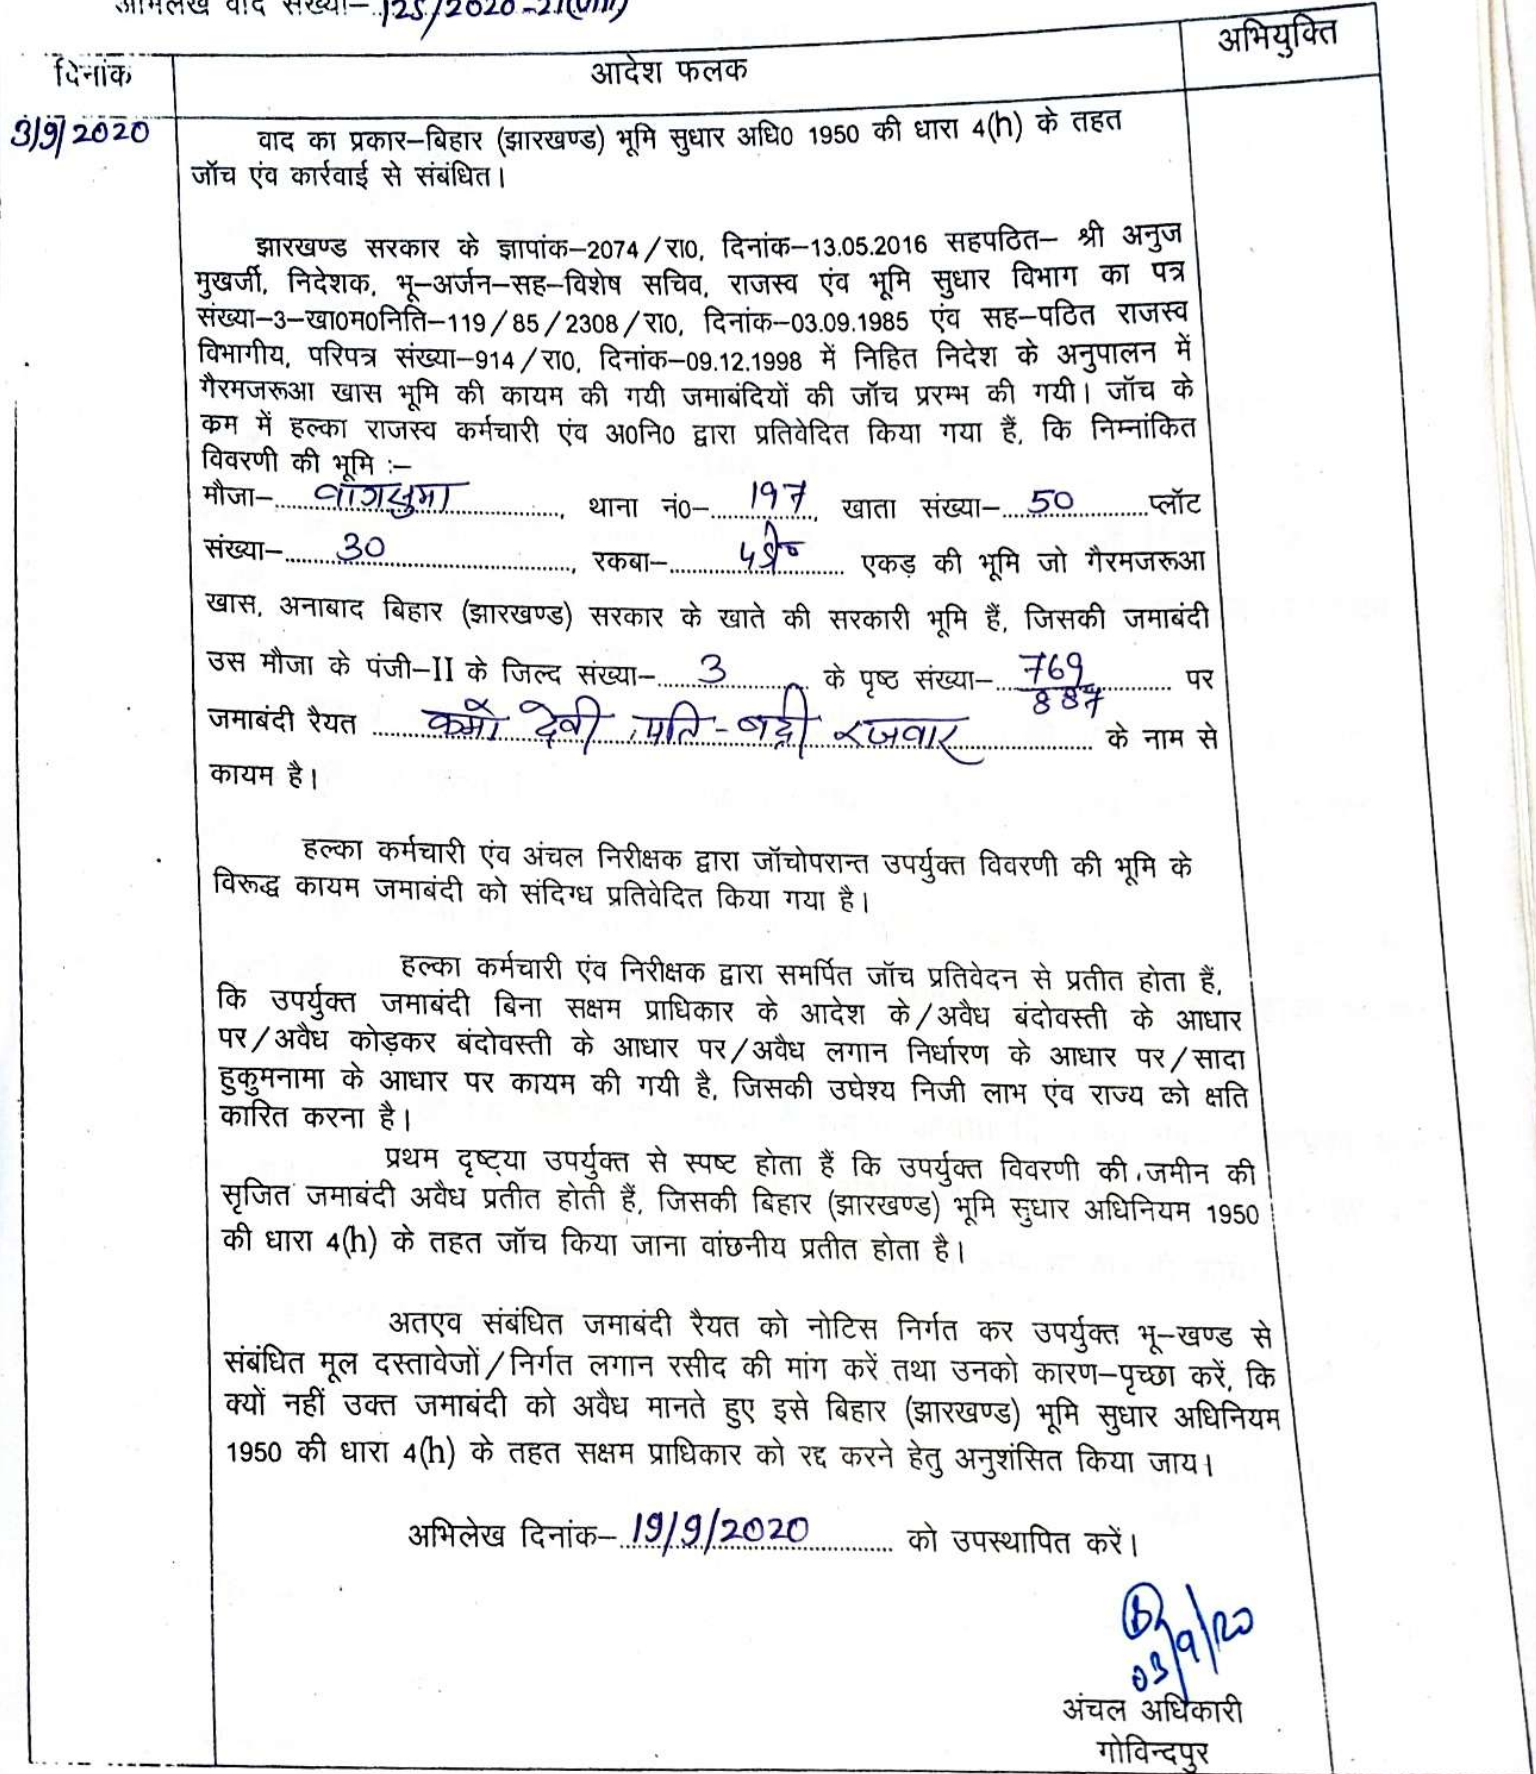 अभिलेख वाद संख्या–125/2020-21(VIII)
दिनांक
आदेश फलक
अभियुक्ति
3/9/2020
वाद का प्रकार–बिहार (झारखण्ड) भूमि सुधार अधि0 1950 की धारा 4(h) के तहत
जॉच एंव कार्रवाई से संबंधित।
झारखण्ड सरकार के ज्ञापांक–2074/रा0, दिनांक–13.05.2016 सहपठित– श्री अनुज
मुखर्जी, निदेशक, भू–अर्जन–सह–विशेष सचिव, राजस्व एंव भूमि सुधार विभाग का पत्र
संख्या–3–खा0म0निति–119/85/2308/रा0, दिनांक–03.09.1985 एंव सह–पठित राजस्व
विभागीय, परिपत्र संख्या–914/रा0, दिनांक–09.12.1998 में निहित निदेश के अनुपालन में
गैरमजरूआ खास भूमि की कायम की गयी जमाबंदियों की जॉच प्ररम्भ की गयी। जॉच के
कम में हल्का राजस्व कर्मचारी एंव अ0नि0 द्वारा प्रतिवेदित किया गया हैं, कि निम्नांकित
विवरणी की भूमि :–
मौजा– थाना नं0– 197, खाता संख्या– 50 प्लॉट
संख्या– 30, रकबा– एकड़ की भूमि जो गैरमजरूआ
खास, अनाबाद बिहार (झारखण्ड) सरकार के खाते की सरकारी भूमि हैं, जिसकी जमाबंदी
उस मौजा के पंजी–II के जिल्द संख्या– 3 के पृष्ठ संख्या– 769/887 पर
जमाबंदी रैयत देवी, पति - बद्री रजवार के नाम से
कायम है।
हल्का कर्मचारी एंव अंचल निरीक्षक द्वारा जॉचोपरान्त उपर्युक्त विवरणी की भूमि के
विरूद्ध कायम जमाबंदी को संदिग्ध प्रतिवेदित किया गया है।
हल्का कर्मचारी एंव निरीक्षक द्वारा समर्पित जॉच प्रतिवेदन से प्रतीत होता हैं,
कि उपर्युक्त जमाबंदी बिना सक्षम प्राधिकार के आदेश के/अवैध बंदोवस्ती के आधार
पर/अवैध कोड़कर बंदोवस्ती के आधार पर/अवैध लगान निर्धारण के आधार पर/सादा
हुकुमनामा के आधार पर कायम की गयी है, जिसकी उघेश्य निजी लाभ एंव राज्य को क्षति
कारित करना है।
प्रथम दृष्ट्या उपर्युक्त से स्पष्ट होता हैं कि उपर्युक्त विवरणी की जमीन की
सृजित जमाबंदी अवैध प्रतीत होती हैं, जिसकी बिहार (झारखण्ड) भूमि सुधार अधिनियम 1950
की धारा 4(h) के तहत जॉच किया जाना वांछनीय प्रतीत होता है।
अतएव संबंधित जमाबंदी रैयत को नोटिस निर्गत कर उपर्युक्त भू–खण्ड से
संबंधित मूल दस्तावेजों/निर्गत लगान रसीद की मांग करें तथा उनको कारण–पृच्छा करें, कि
क्यों नहीं उक्त जमाबंदी को अवैध मानते हुए इसे बिहार (झारखण्ड) भूमि सुधार अधिनियम
1950 की धारा 4(h) के तहत सक्षम प्राधिकार को रद्द करने हेतु अनुशंसित किया जाय।
अभिलेख दिनांक– 19/9/2020 को उपस्थापित करें।
03/9/20
अंचल अधिकारी
गोविन्दपुर